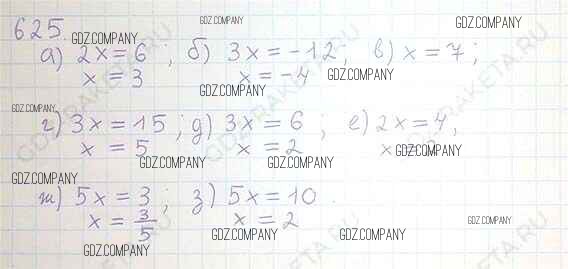 625.
а) 2x = 6 ; б) 3x = -12, в) x = 7 ;
x = 3 x = -4
г) 3x = 15 ; д) 3x = 6 ; е) 2x = 4,
x = 5 x = 2 x =
ж) 5x = 3 ; з) 5x = 10.
x = 3/5 x = 2
GDZ.COMPANY
GDZ.COMPANY
GDZ.COMPANY
GDZ.COMPANY
GDZ.COMPANY
GDZ.COMPANY
GDZ.COMPANY
GDZ.COMPANY
GDZ.COMPANY
GDZ.COMPANY
GDZ.COMPANY
GDZ.COMPANY
GDZ.COMPANY
GDZ.COMPANY
GDZRAKETA.RU
GDZRAKETA.RU